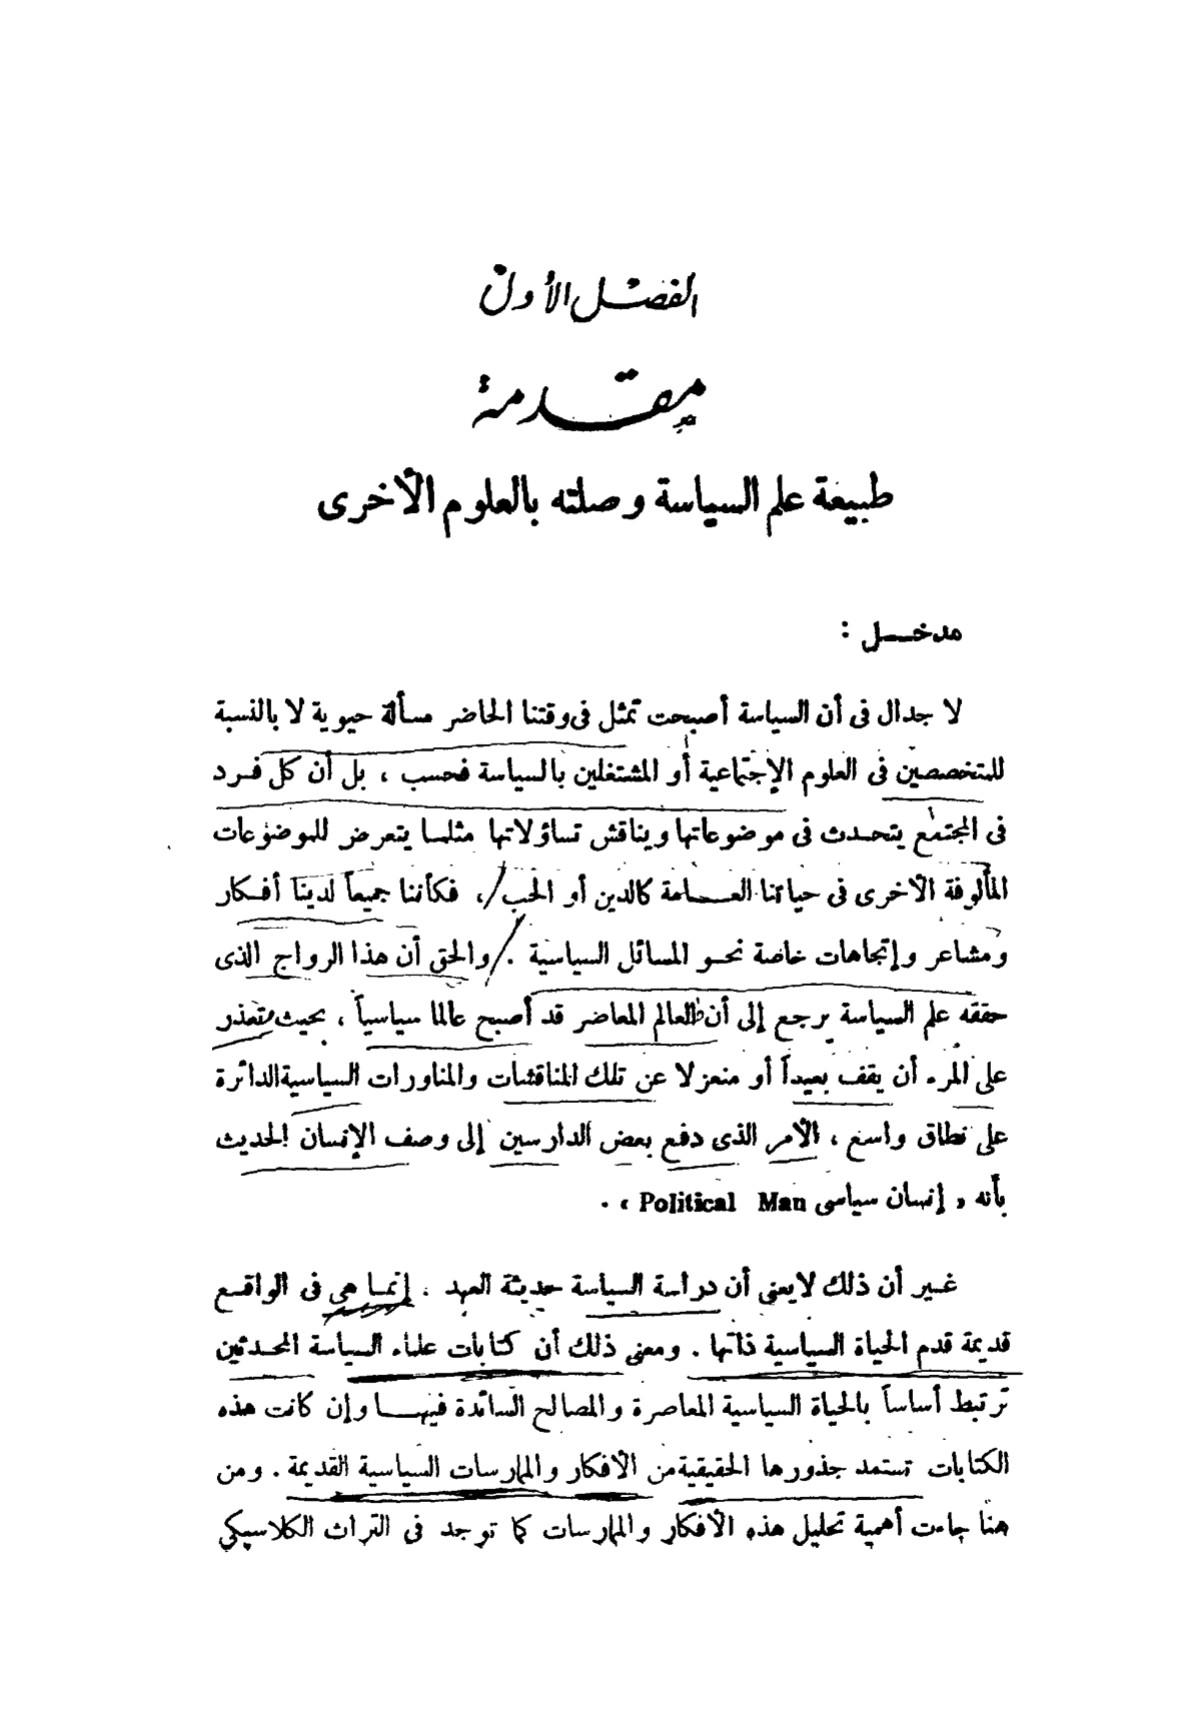 الفصل الأول
مقدمة
طبيعة علم السياسة وصلته بالعلوم الأخرى
مدخـــل :
لا جدال فى أن السياسة أصبحت تمثل فى وقتنا الحاضر مسألة حيوية لا بالنسبة
للمتخصصين فى العلوم الإجتماعية أو المشتغلين بالسياسة فحسب ، بل أن كل فــرد
فى المجتمع يتحــدث فى موضوعاتها ويناقش تساؤلاتها مثلمــا يتعرض للموضوعات
المألوفة الأخرى فى حياتنا العـــامة كالدين أو الحب ، فكأننا جميعاً لدينا أفــكار
ومشاعر وإتجاهات خاصة نحــو المسائل السياسية . والحق أن هذا الرواج الذى
حققه علم السياسة يرجع إلى أن العالم المعاضر قد أصبح عالما سياسياً ، بحيث يتعذر
على المرء أن يقف بعيداً أو منعزلا عن تلك المناقشات والمناورات السياسية الدائرة
على نطاق واسع ، الأمر الذى دفع بعض الدارسين إلى وصف الإنسان الحديث
بأنه « إنسان سياسى Political Man » .
غــير أن ذلك لا يعنى أن دراسة السياسة حديثة العهد . إنمــا هى فى الواقــع
قديمة قدم الحياة السياسية ذاتها . ومعنى ذلك أن كتابات علماء الســياسة المحــدثين
ترتبط أساساً بالحياة السياسية المعاصرة والمصالح السائدة فيهــا وإن كانت هذه
الكتابات تستمد جذورها الحقيقية من الأفكار والممارسات السياسية القديمة . ومن
هنا جاءت أهمية تحليل هذه الأفكار والممارسات كما توجد فى التراث الكلاسيكى